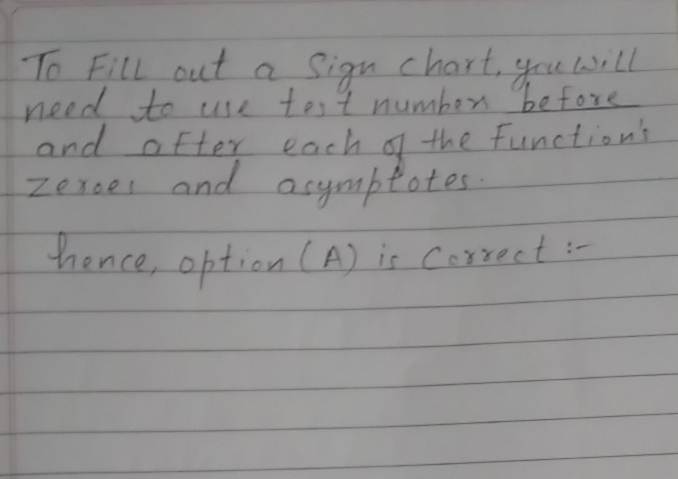 To Fill out a Sign chart, you will
need to use test numbers before
and after each of the Function's
zeroes and asymptotes.
hence, option (A) is Correct :-